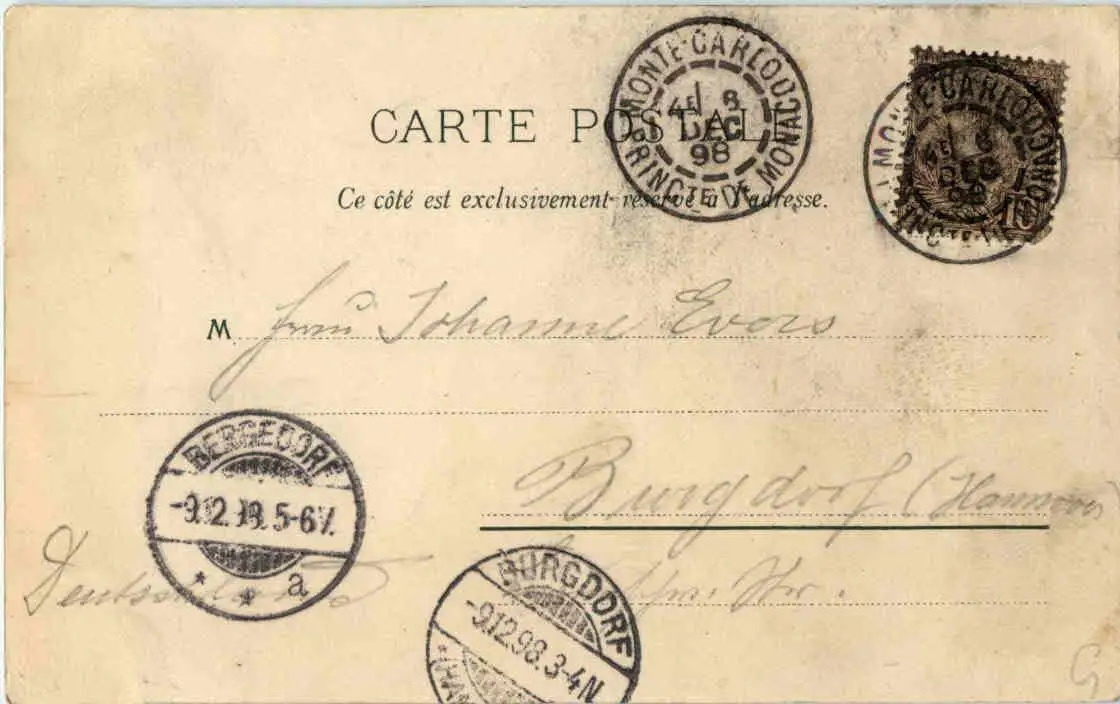 MONTE-CARLO
4E 8
DEC
98
PRINCTE DE MONACO
MONTE-CARLO
4E 8
DEC
98
PRINCTE DE MONACO
15
CARTE POSTALE
Ce côté est exclusivement réservé à l'adresse.
M Frau Johanne Evers
Burgdorf (Hannover)
BERGEDORF
-9.12.98.5-6V.
* * a
Deutschland
BURGDORF
-9.12.98.3-4N